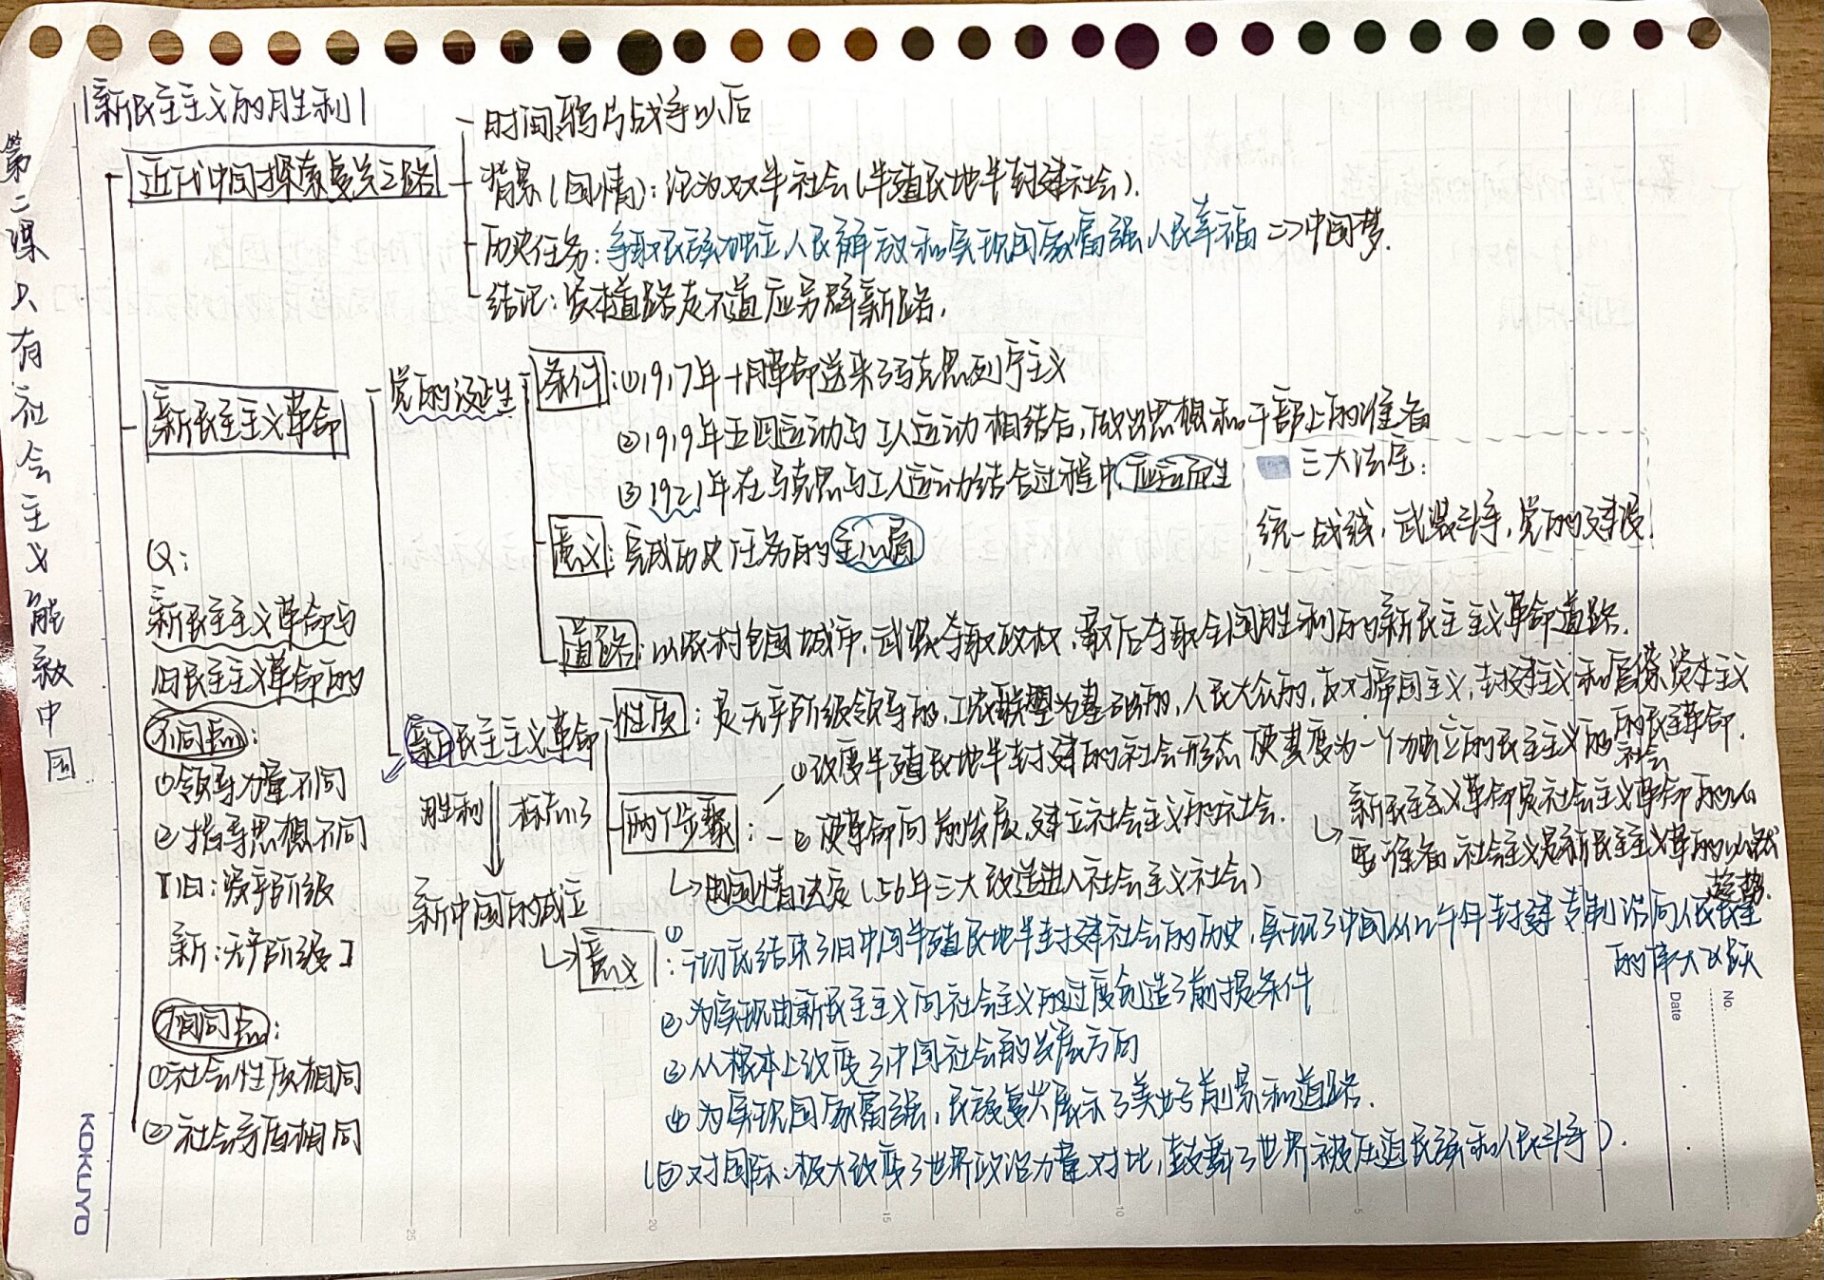 第二课 只有社会主义能救中国
新民主主义的胜利
近代中国探索复兴之路
时间 鸦片战争以后
背景(国情):沦为双半社会(半殖民地半封建社会).
历史任务:争取民族独立人民解放和实现国家富强人民幸福 => 中国梦.
结论:资本道路走不通应另辟新路.
新民主主义革命
党的诞生
条件:①1917年十月革命送来了马克思列宁主义
②1919年五四运动与工人运动相结合,做出思想和干部上的准备
③1921年在马克思与工人运动结合过程中,应运而生
三大法宝:
统一战线,武装斗争,党的建设.
意义:完成历史任务的主心骨
道路:以农村包围城市,武装夺取政权,最后夺取全国胜利的新民主主义革命道路.
新民主主义革命
性质:是无产阶级领导的,工农联盟为基础的,人民大众的,反对帝国主义,封建主义和官僚资本主义
的民主革命.
两个步骤:
①改变半殖民地半封建的社会形态,使其变为一个独立的民主主义的社会
②使革命向前发展,建立社会主义的社会.
由国情决定(56年三大改造进入社会主义社会)
新民主主义革命是社会主义革命的必
要准备,社会主义是新民主主义革的必然
趋势.
胜利 标志了
新中国的成立
意义:
①彻底结束了旧中国半殖民地半封建社会的历史,实现了中国从几千年封建专制 向人民民主
的伟大飞跃
②为实现由新民主主义向社会主义的过度创造了前提条件
③从根本上改变了中国社会的发展方向
④为实现国家富强,民族复兴展示了美好前景和道路.
(⑤对国际:极大改变了世界政治力量对比,鼓舞了世界被压迫民族和人民斗争).
Q:
新民主主义革命与
旧民主主义革命的
不同点:
①领导力量不同
②指导思想不同
[旧:资产阶级
新:无产阶级]
相同点:
①社会性质相同
②社会矛盾相同
KOKUYO
No.
Date
25
20
15
10
5